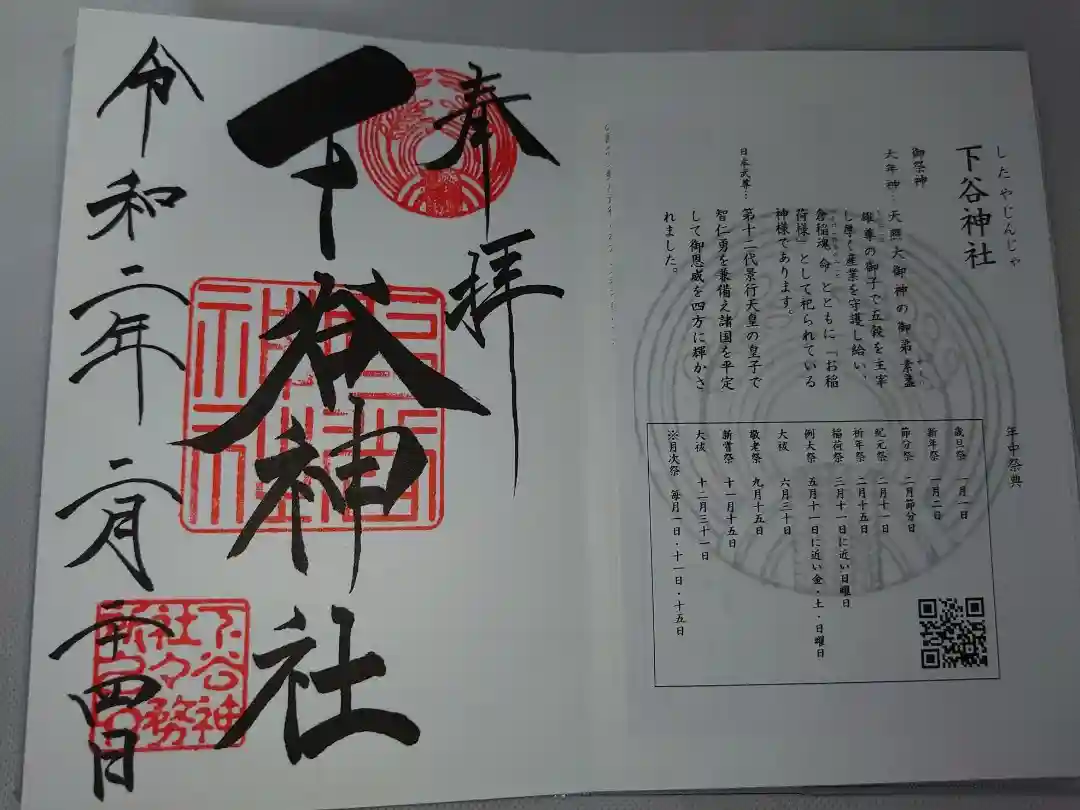 したやじんじゃ
下谷神社
御祭神
大年神…天照大御神の御弟素盞
雄尊の御子で五穀を主宰
し厚く産業を守護し給い、
倉稲魂命とともに「お稲
荷様」として祀られている
神様であります。
日本武尊…第十二代景行天皇の皇子で
智仁勇を兼備え諸国を平定
して御恩威を四方に輝かさ
れました。
年中祭典
歳旦祭 一月一日
新年祭 一月二日
節分祭 二月節分日
紀元祭 二月十一日
祈年祭 二月十五日
稲荷祭 三月十一日に近い日曜日
例大祭 五月十一日に近い金・土・日曜日
大祓 六月三十日
敬老祭 九月十五日
新嘗祭 十一月十五日
大祓 十二月三十一日
※月次祭 毎月一日・十一日・十五日
奉拝
下谷神社
令和二年二月二十四日
下谷神
社々務
所之印